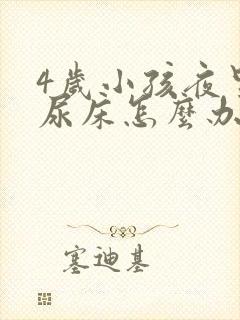 4歲小孩夜里
尿床怎麼办
塞迪基